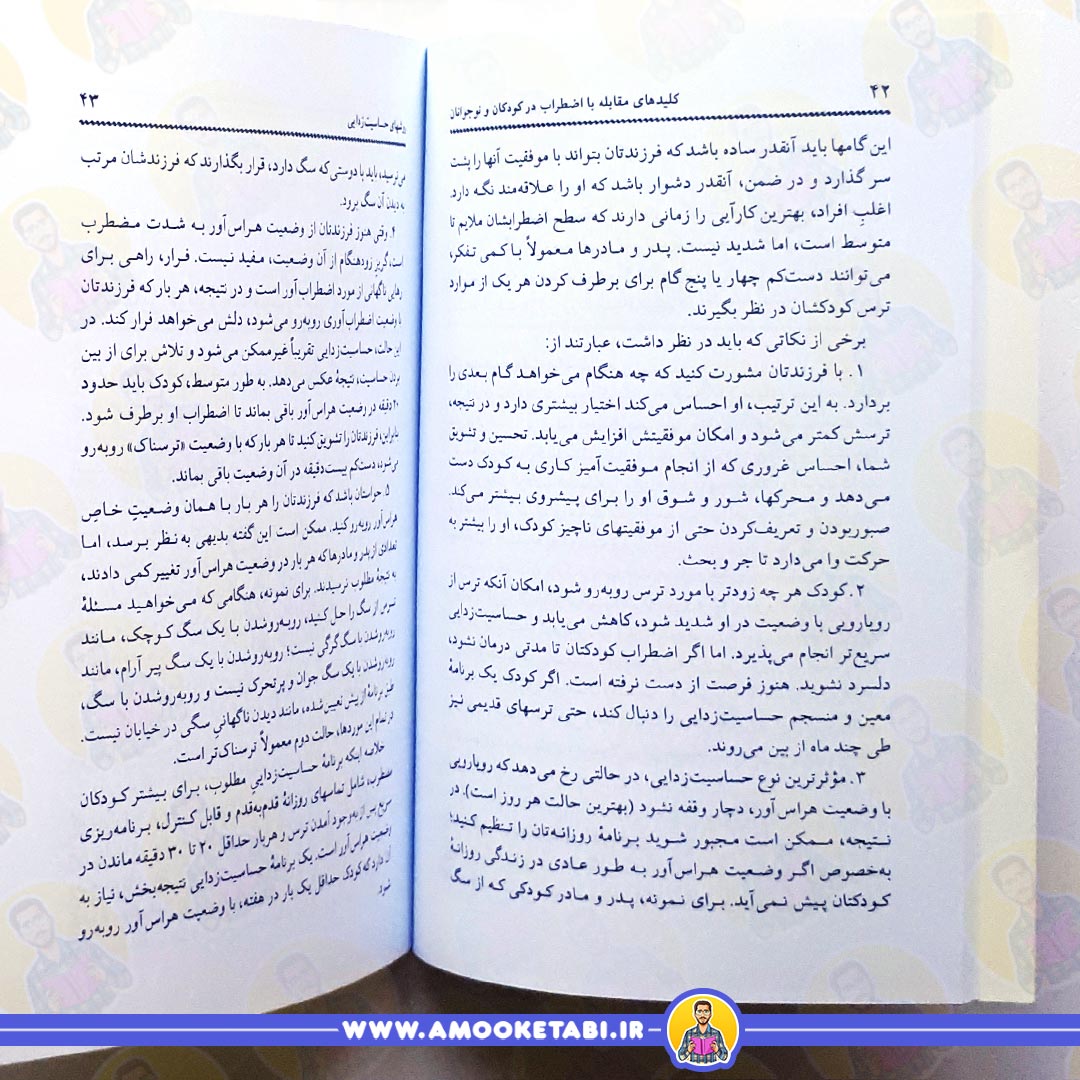 ۴۲
کلیدهای مقابله با اضطراب در کودکان و نوجوانان
این گامها باید آنقدر ساده باشد که فرزندتان بتواند با موفقیت آنها را پشت
سر گذارد و در ضمن، آنقدر دشوار باشد که او را علاقه‌مند نگه دارد.
اغلبِ افراد، بهترین کارآیی را زمانی دارند که سطح اضطرابشان ملایم تا
متوسط است، اما شدید نیست. پدر و مادرها معمولاً با کمی تفکر،
می‌توانند دست‌کم چهار یا پنج گام برای برطرف کردن هر یک از موارد
ترس کودکشان در نظر بگیرند.
برخی از نکاتی که باید در نظر داشت، عبارتند از:
۱. با فرزندتان مشورت کنید که چه هنگام می‌خواهد گام بعدی را
بردارد. به این ترتیب، او احساس می‌کند اختیار بیشتری دارد و در نتیجه،
ترسش کمتر می‌شود و امکان موفقیتش افزایش می‌یابد. تحسین و تشویق
شما، احساس غروری که از انجام موفقیت‌آمیز کاری به کودک دست
می‌دهد و محرکها، شور و شوق او را برای پیشروی بیشتر می‌کند.
صبوربودن و تعریف‌کردن حتی از موفقیتهای ناچیز کودک، او را بیشتر به
حرکت وا می‌دارد تا جر و بحث.
۲. کودک هر چه زودتر با مورد ترس روبه‌رو شود، امکان آنکه ترس از
رویارویی با وضعیت در او شدید شود، کاهش می‌یابد و حساسیت‌زدایی
سریع‌تر انجام می‌پذیرد. اما اگر اضطراب کودکتان تا مدتی درمان نشود،
دلسرد نشوید. هنوز فرصت از دست نرفته است. اگر کودک یک برنامهٔ
معین و منسجم حساسیت‌زدایی را دنبال کند، حتی ترسهای قدیمی نیز
طی چند ماه از بین می‌روند.
۳. مؤثرترین نوع حساسیت‌زدایی، در حالتی رخ می‌دهد که رویارویی
با وضعیت هراس‌آور، دچار وقفه نشود (بهترین حالت هر روز است). در
نتیجه، ممکن است مجبور شوید برنامهٔ روزانه‌تان را تنظیم کنید؛
به‌خصوص اگر وضعیت هراس‌آور به طور عادی در زندگی روزانهٔ
کودکتان پیش نمی‌آید. برای نمونه، پدر و مادر کودکی که از سگ
۴۳
روشهای حساسیت‌زدایی
می‌ترسید، باید با دوستی که سگ دارد، قرار بگذارند که فرزندشان مرتب
به دیدن آن سگ برود.
۴. وقتی هنوز فرزندتان از وضعیت هراس‌آور به شدت مضطرب
است، گریز زودهنگام از آن وضعیت، مفید نیست. فرار، راهی برای
رهایی ناگهانی از مورد اضطراب‌آور است و در نتیجه، هر بار که فرزندتان
با وضعیت اضطراب‌آوری روبه‌رو می‌شود، دلش می‌خواهد فرار کند. در
این حالت، حساسیت‌زدایی تقریباً غیرممکن می‌شود و تلاش برای از بین
بردن حساسیت، نتیجهٔ عکس می‌دهد. به طور متوسط، کودک باید حدود
۲۰ دقیقه در وضعیت هراس‌آور باقی بماند تا اضطراب او برطرف شود.
بنابراین، فرزندتان را تشویق کنید تا هر بار که با وضعیت «ترسناک» روبه‌رو
می‌شود، دست‌کم بیست دقیقه در آن وضعیت باقی بماند.
۵. حواستان باشد که فرزندتان را هر بار با همان وضعیتِ خاصِ
هراس‌آور روبه‌رو کنید. ممکن است این گفته بدیهی به نظر برسد، اما
تعدادی از پدر و مادرها که هر بار در وضعیت هراس‌آور تغییر کمی دادند،
به نتیجهٔ مطلوب نرسیدند. برای نمونه، هنگامی که می‌خواهید مسئلهٔ
ترس از سگ را حل کنید، روبه‌روشدن با یک سگ کوچک، مانند
روبه‌روشدن با سگ گرگی نیست؛ روبه‌روشدن با یک سگ پیر آرام، مانند
روبه‌روشدن با یک سگ جوان و پرتحرک نیست و روبه‌روشدن با سگ،
طبق برنامهٔ از پیش تعیین شده، مانند دیدن ناگهانی سگی در خیابان نیست.
در تمام این موردها، حالت دوم معمولاً ترسناک‌تر است.
خلاصه اینکه برنامهٔ حساسیت‌زدایی مطلوب، برای بیشتر کودکان
مضطرب، شامل تماسهای روزانهٔ قدم‌به‌قدم و قابل کنترل، برنامه‌ریزی
سریع پس از به‌وجود آمدن ترس و هربار حداقل ۲۰ تا ۳۰ دقیقه ماندن در
وضعیت هراس‌آور است. یک برنامهٔ حساسیت‌زدایی نتیجه‌بخش، نیاز به
آن دارد که کودک حداقل یک بار در هفته، با وضعیت هراس‌آور روبه‌رو
شود
WWW.AMOOKETABI.IR